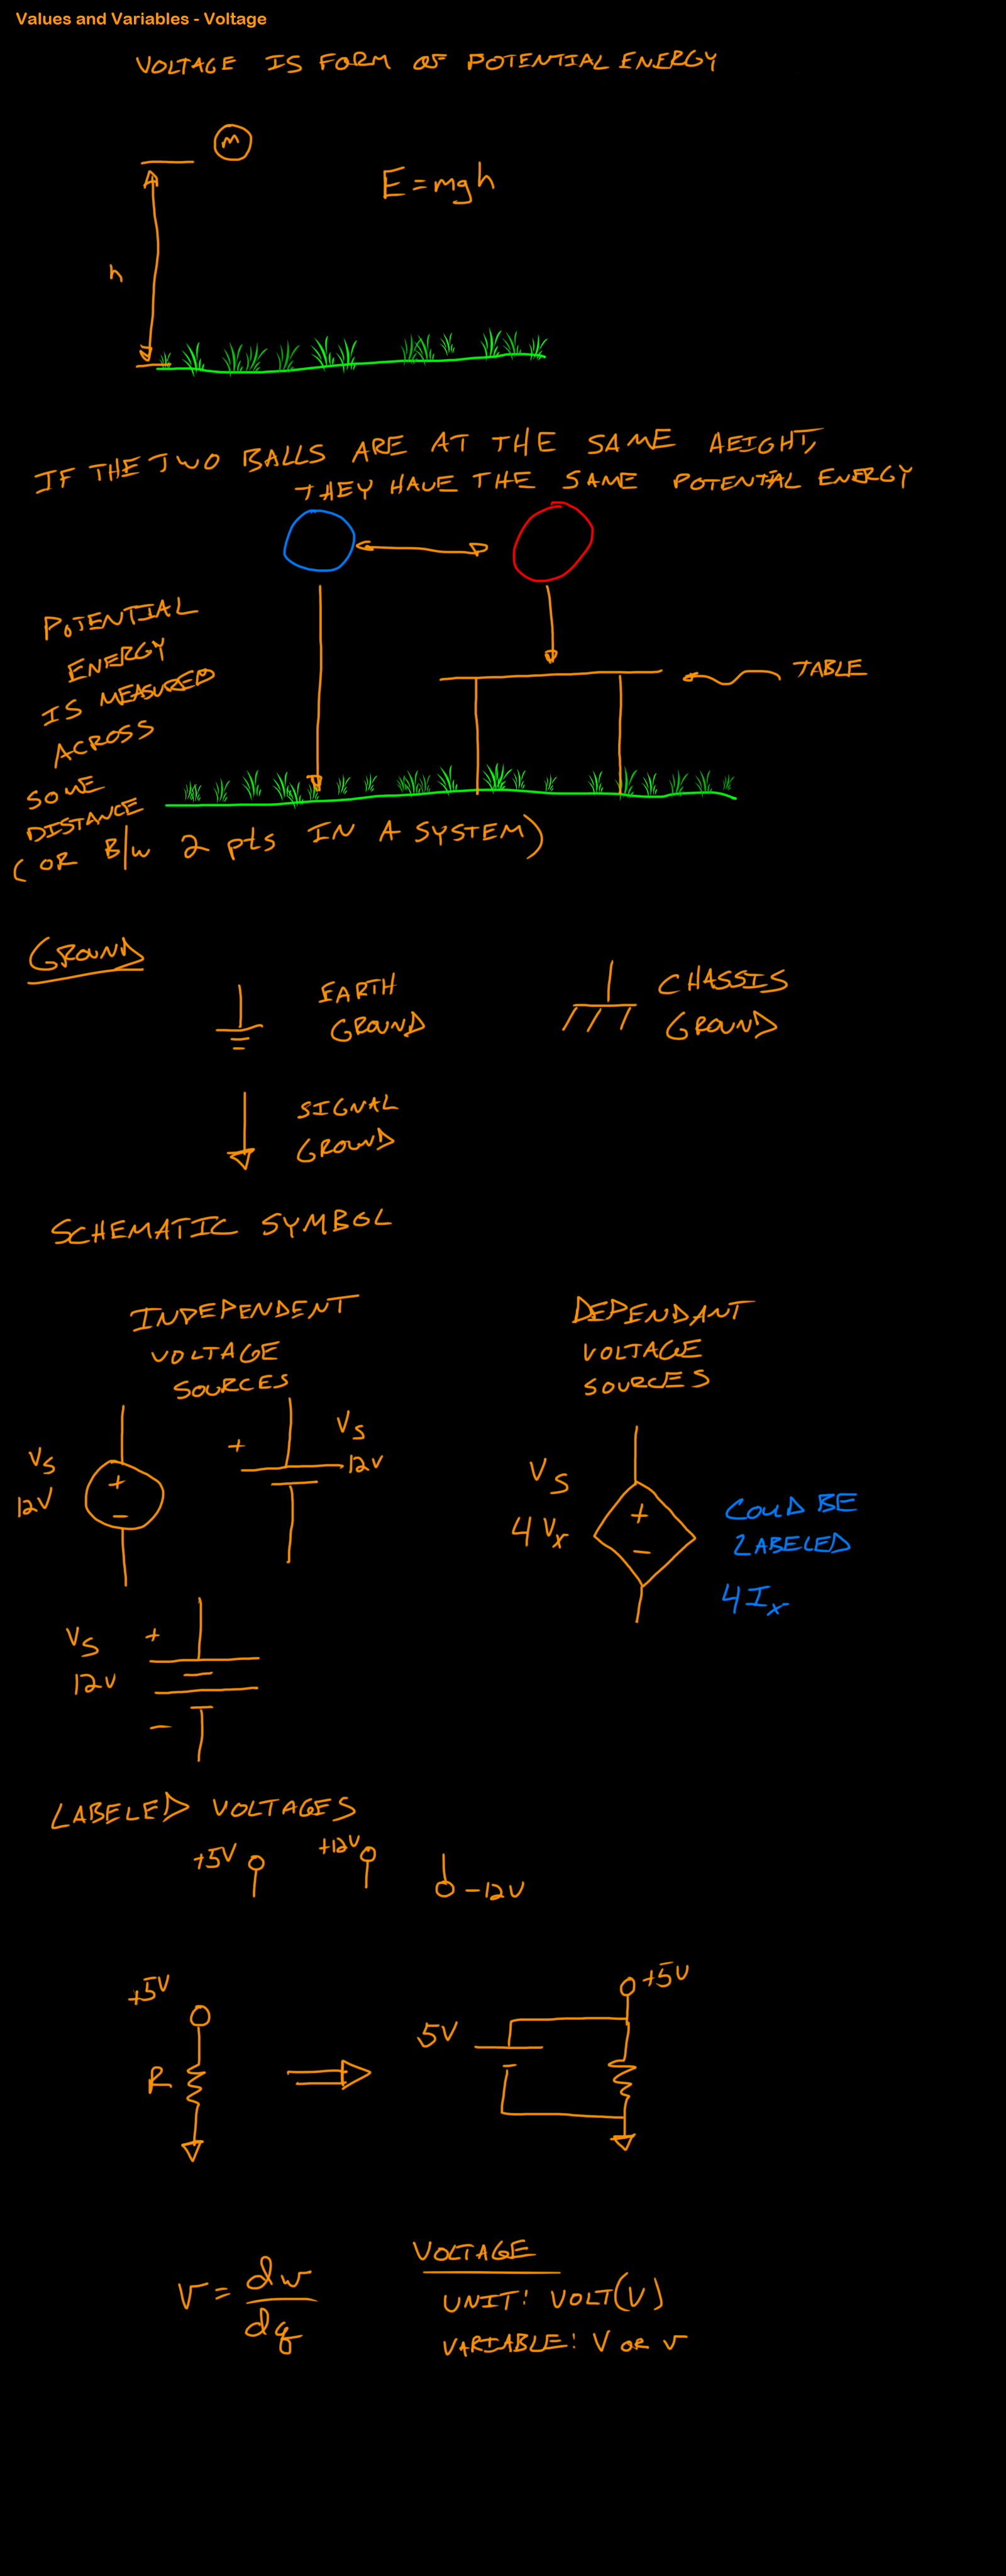 Values and Variables - Voltage
VOLTAGE IS FORM OF POTENTIAL ENERGY
M
E = mgh
h
IF THE TWO BALLS ARE AT THE SAME HEIGHT,
THEY HAVE THE SAME POTENTIAL ENERGY
POTENTIAL
ENERGY
IS MEASURED
ACROSS
SOME
DISTANCE
(OR B/W 2 pts IN A SYSTEM)
TABLE
GROUND
EARTH
GROUND
CHASSIS
GROUND
SIGNAL
GROUND
SCHEMATIC SYMBOL
INDEPENDENT
VOLTAGE
SOURCES
DEPENDANT
VOLTAGE
SOURCES
VS
12V
+
-
+
VS
12V
VS
4Vx
+
-
COULD BE
LABELED
4Ix
VS
12V
+
-
LABELED VOLTAGES
+5V
+12V
-12V
+5V
R
5V
+5V
v = dw
dq
VOLTAGE
UNIT: VOLT(V)
VARIABLE: V OR v